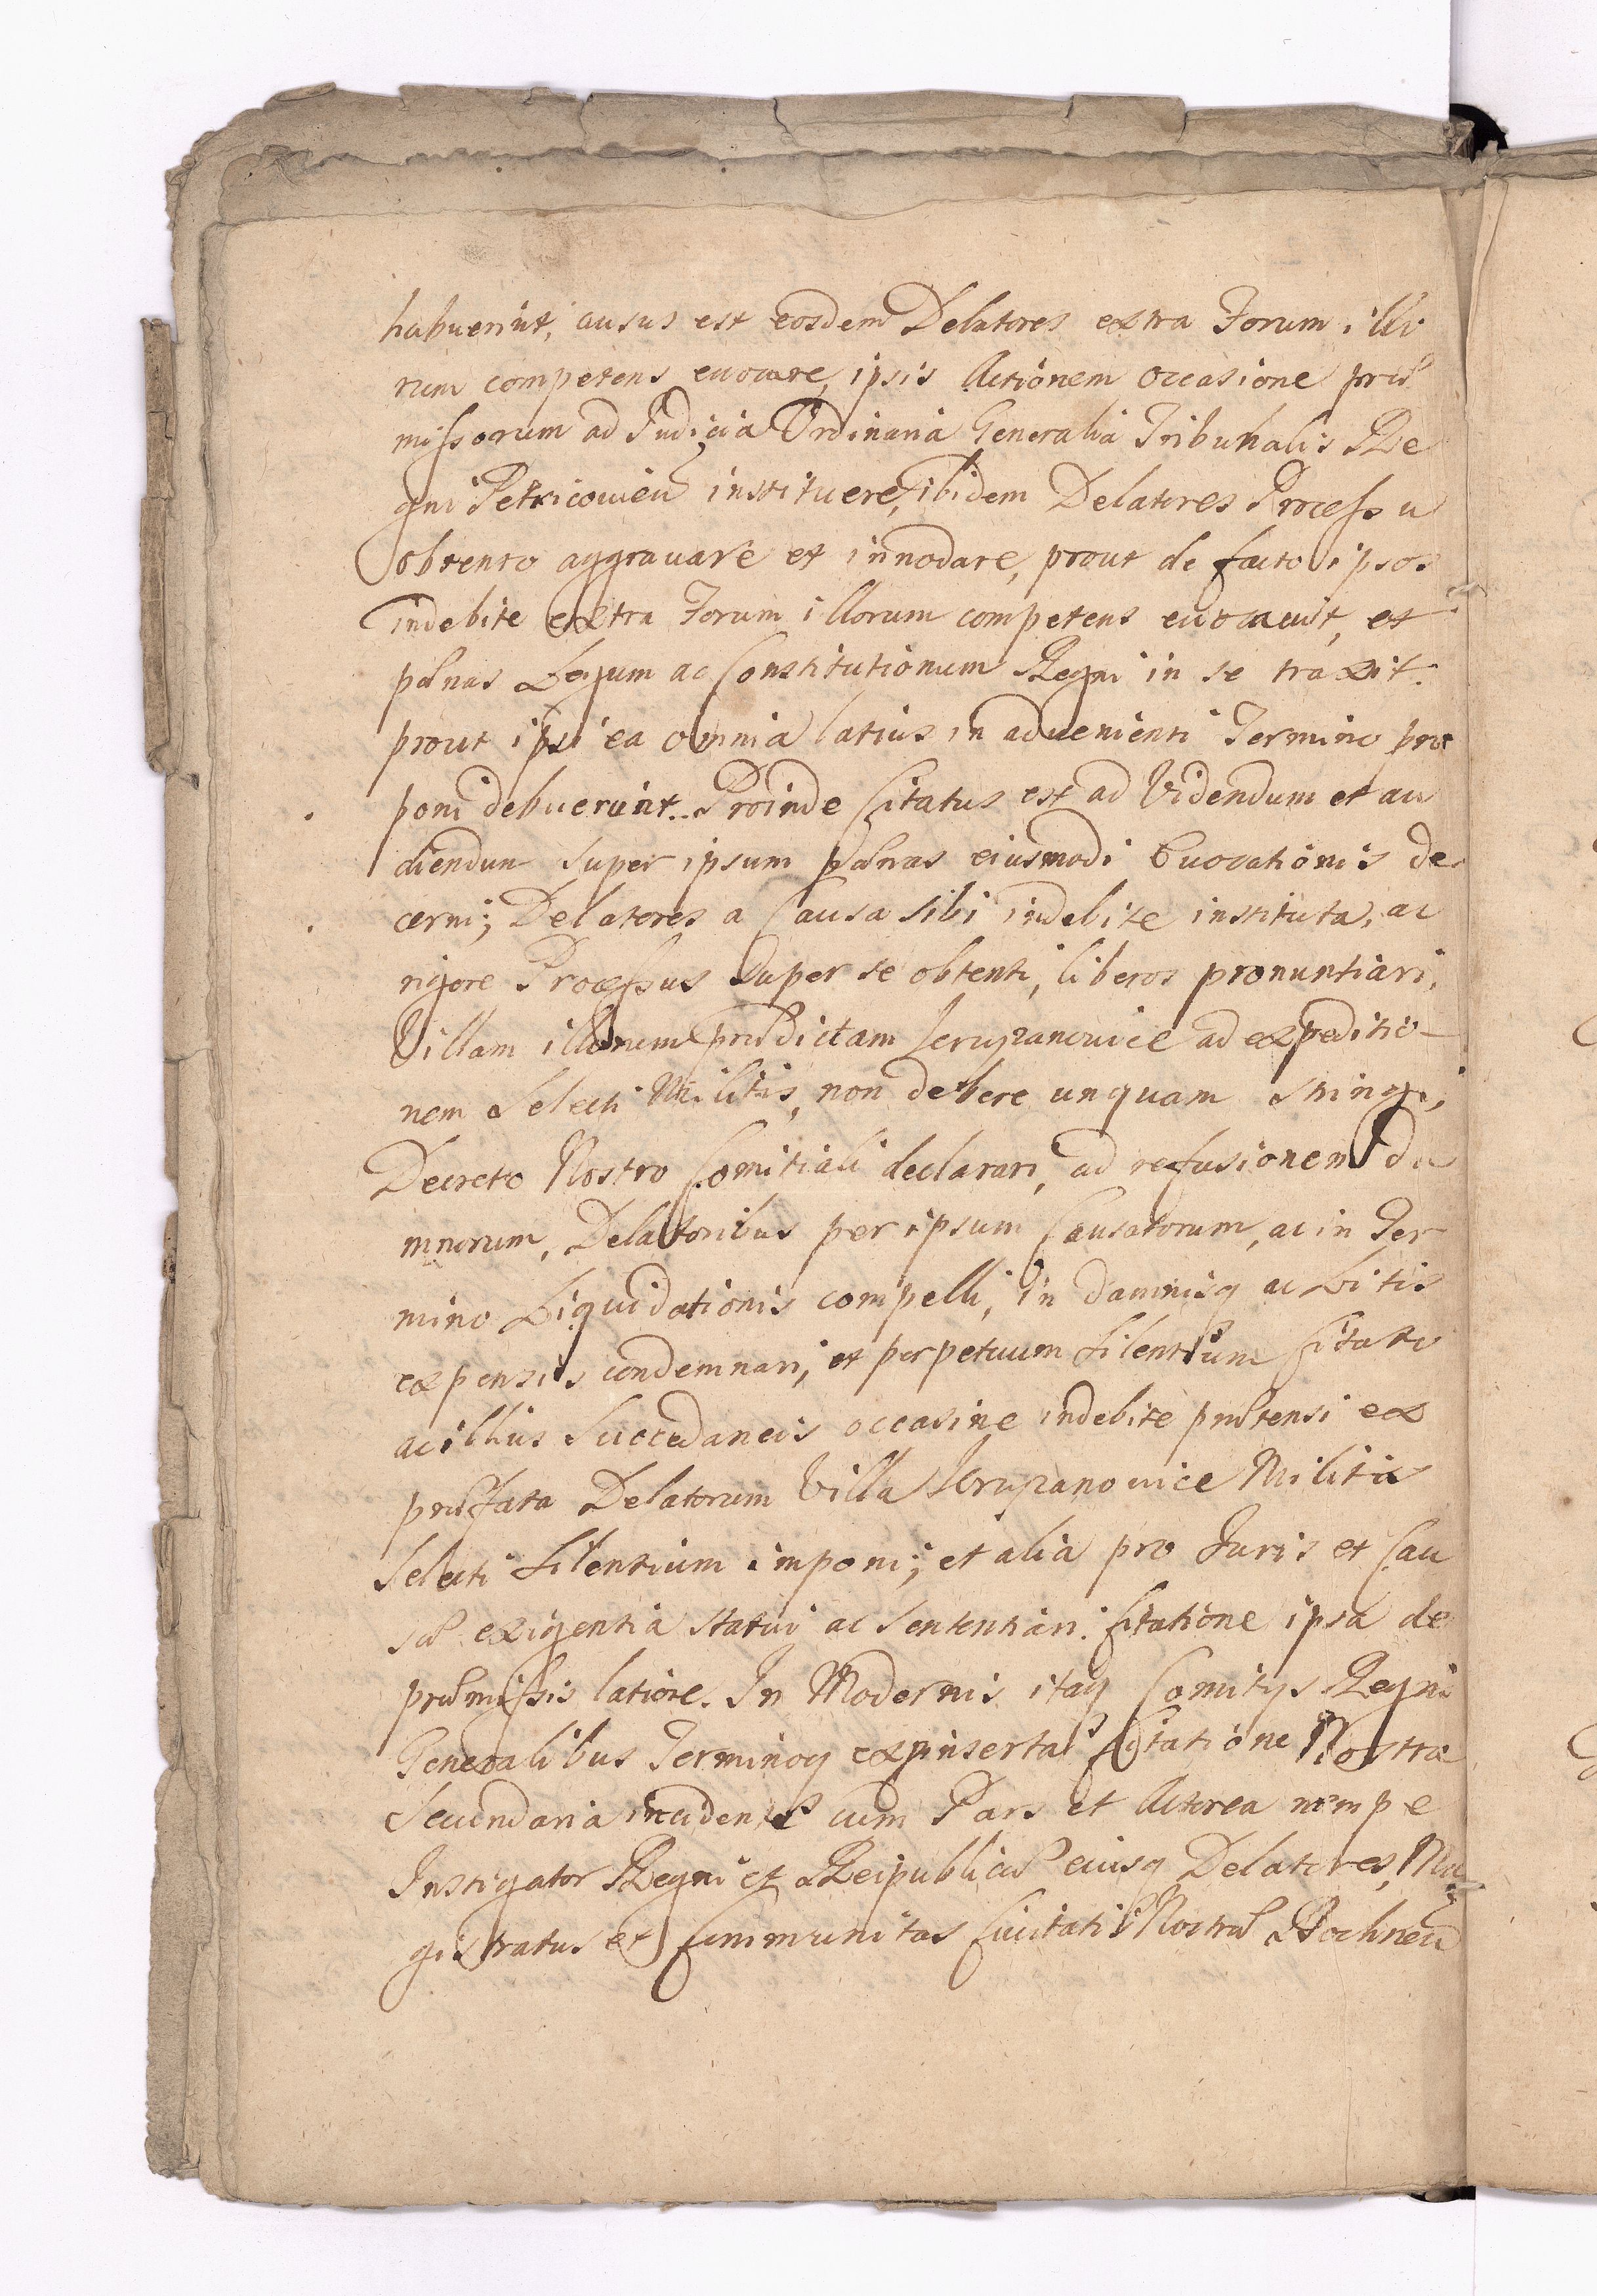 habuerint, ausus est eosdem Delatores extra Forum illo
rum competens evocare, ipsis Actionem occasione præ
missorum ad Judicia Ordinaria Generalia Tribunalis Re
gni Petricovien instituere, ibidem Delatores Processu
obtento aggravare et innodare, prout de facto ipsos
indebite extra Forum illorum competens evocavit, et
pænas Legum ac Constitutionum Regni in se traxit.
prout ipsi ea omnia latius in advenienti Termino pro
poni debuerint. Proinde Citatus est ad Videndum et au
diendum super ipsum pænas eiusmodi Evocationis de
cerni; Delatores a Causa sibi indebite instituta, ac
rigore Processus super se obtenti, liberos pronuntiari,
Villam illorum prædictam ad expeditio-
nem Selecti Militis, non debere unquam stringi,
Decreto Nostro Comitiali declarari, ad refusionem da
mnorum, Delatoribus per ipsum Causatorum, ac in Ter
mino Liquidationis compelli, in damnisq ac Litis
expensis condemnari, et perpetuum Silentium Citato
ac illius Succedaneis occasine indebite prætensi ex
præfata Delatorum Villa Militis
Selecti Silentium imponi; et alia pro Juris et Cau
sæ exigentia statui ac sententiari. Citatione ipsa de
præmissis latiore. In Modernis itaq Comitys Regni
Generalibus Terminoq ex inserta Citatione Nostra
Secundaria incidenti cum Pars et Actorea nempe
Instigator Regni et Reipublicæ eiusq Delatores, Ma
gistratus et Communitas Civitatis Nostræ Bochnen